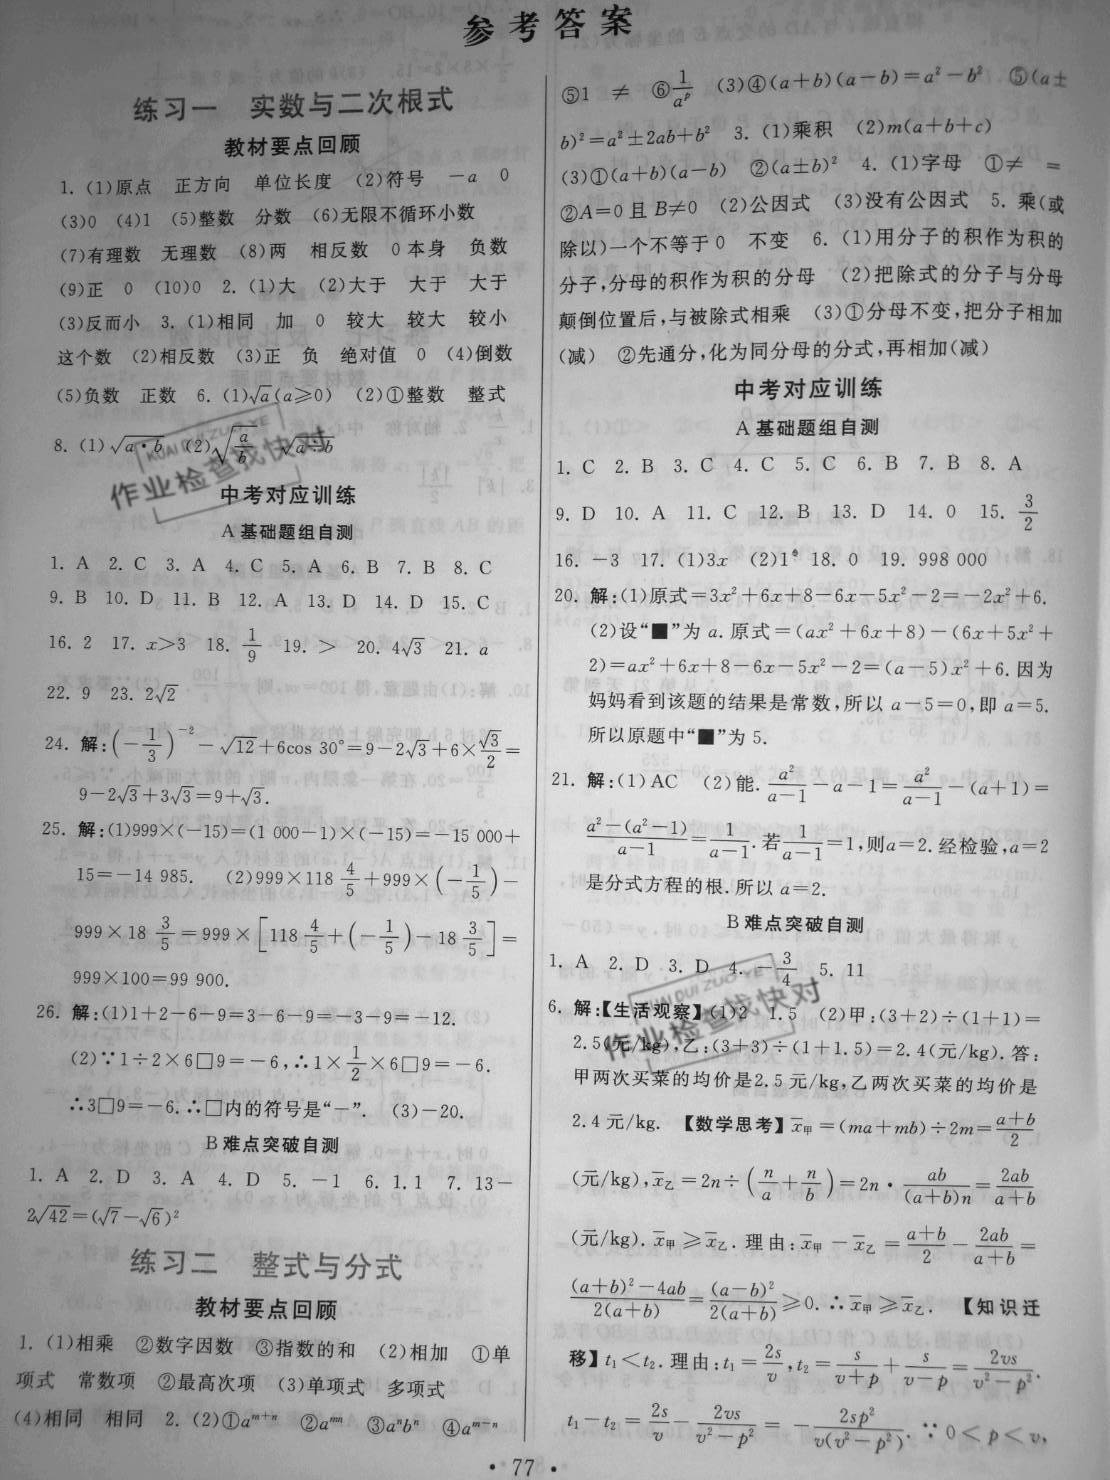 参考答案
练习一 实数与二次根式
教材要点回顾
1. (1)原点 正方向 单位长度 (2)符号 －a 0
(3)0 (4)1 (5)整数 分数 (6)无限不循环小数
(7)有理数 无理数 (8)两 相反数 0 本身 负数
(9)正 0 (10)0 2. (1)大 (2)大于 大于 大于
(3)反而小 3. (1)相同 加 0 较大 较大 较小
这个数 (2)相反数 (3)正 负 绝对值 0 (4)倒数
(5)负数 正数 6. (1)√a(a≥0) (2)①整数 整式
8. (1)√(a·b) (2)√(a/b)
中考对应训练
A 基础题组自测
1. A 2. C 3. A 4. C 5. A 6. B 7. B 8. C
9. B 10. D 11. B 12. A 13. D 14. D 15. C
16. 2 17. x>3 18. 1/9 19. > 20. 4√3 21. a
22. 9 23. 2√2
24. 解:(－1/3)⁻²－√12＋6cos 30°＝9－2√3＋6×√3/2＝
9－2√3＋3√3＝9＋√3.
25. 解:(1)999×(－15)＝(1 000－1)×(－15)＝－15 000＋
15＝－14 985. (2)999×118 4/5＋999×(－1/5)－
999×18 3/5＝999×[118 4/5＋(－1/5)－18 3/5]＝
999×100＝99 900.
26. 解:(1)1＋2－6－9＝3－6－9＝－3－9＝－12.
(2)∵1÷2×6□9＝－6,∴1×1/2×6□9＝－6.
∴3□9＝－6.∴□内的符号是“－”. (3)－20.
B 难点突破自测
1. A 2. D 3. A 4. D 5. －1 6. 1.1 7. 13－
2√42＝(√7－√6)²
练习二 整式与分式
教材要点回顾
1. (1)相乘 ②数字因数 ③指数的和 (2)相加 ①单
项式 常数项 ②最高次项 (3)单项式 多项式
(4)相同 相同 2. (2)①aᵐ⁺ⁿ ②aᵐⁿ ③aⁿbⁿ ④aᵐ⁻ⁿ
⑤1 ≠ ⑥1/aᵖ (3)④(a＋b)(a－b)＝a²－b² ⑤(a±
b)²＝a²±2ab＋b² 3. (1)乘积 (2)m(a＋b＋c)
(3)①(a＋b)(a－b) ②(a±b)² 4. (1)字母 ①≠ ＝
②A＝0 且 B≠0 (2)公因式 (3)没有公因式 5. 乘(或
除以)一个不等于 0 不变 6. (1)用分子的积作为积的
分子,分母的积作为积的分母 (2)把除式的分子与分母
颠倒位置后,与被除式相乘 (3)①分母不变,把分子相加
(减) ②先通分,化为同分母的分式,再相加(减)
中考对应训练
A 基础题组自测
1. C 2. B 3. C 4. C 5. C 6. B 7. B 8. A
9. D 10. A 11. C 12. B 13. D 14. 0 15. 3/2
16. －3 17. (1)3x (2)1 18. 0 19. 998 000
20. 解:(1)原式＝3x²＋6x＋8－6x－5x²－2＝－2x²＋6.
(2)设“■”为 a. 原式＝(ax²＋6x＋8)－(6x＋5x²＋
2)＝ax²＋6x＋8－6x－5x²－2＝(a－5)x²＋6. 因为
妈妈看到该题的结果是常数,所以 a－5＝0,即 a＝5.
所以原题中“■”为 5.
21. 解:(1)AC (2)能. a²/(a－1)－a－1＝a²/(a－1)－(a＋1)＝
(a²－(a²－1))/(a－1)＝1/(a－1). 若1/(a－1)＝1,则a＝2. 经检验,a＝2
是分式方程的根. 所以 a＝2.
B 难点突破自测
1. A 2. D 3. D 4. －3/4 5. 11
6. 解:【生活观察】(1)2 1.5 (2)甲:(3＋2)÷(1＋1)＝
2.5(元/kg),乙:(3＋3)÷(1＋1.5)＝2.4(元/kg). 答:
甲两次买菜的均价是2.5 元/kg,乙两次买菜的均价是
2.4 元/kg. 【数学思考】x̄甲＝(ma＋mb)÷2m＝(a＋b)/2
(元/kg),x̄乙＝2n÷(n/a＋n/b)＝2n·ab/((a＋b)n)＝2ab/(a＋b)
(元/kg). x̄甲≥x̄乙. 理由:x̄甲－x̄乙＝(a＋b)/2－2ab/(a＋b)＝
((a＋b)²－4ab)/(2(a＋b))＝(a－b)²/(2(a＋b))≥0. ∴x̄甲≥x̄乙. 【知识迁
移】t₁<t₂. 理由:t₁＝2s/v,t₂＝s/(v＋p)＋s/(v－p)＝2vs/(v²－p²).
t₁－t₂＝2s/v－2vs/(v²－p²)＝－2sp²/(v(v²－p²)). ∵0<p<v,
·77·
作业检查找快对
KUAI DUI ZUO YE
作业检查找快对
KUAI DUI ZUO YE